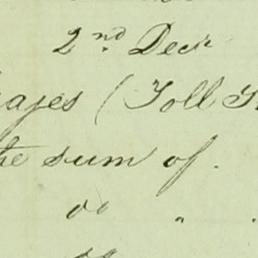 2nd Decr
ages (Toll
the sum of.
do "